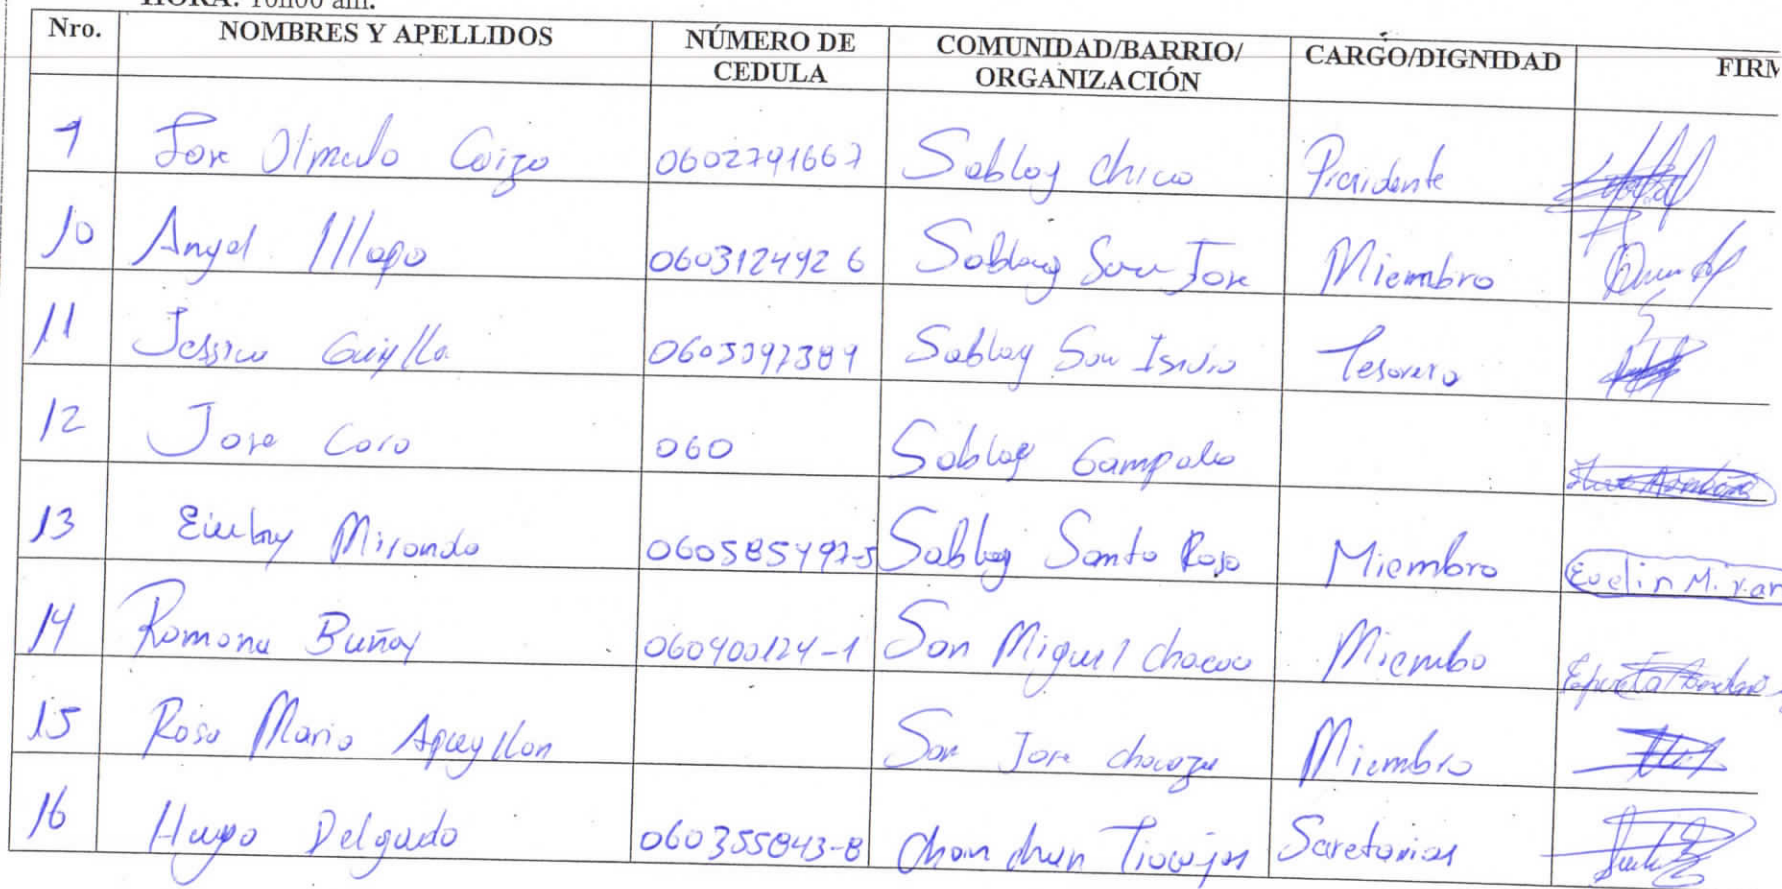 HORA: 10h00 am.
Nro. NOMBRES Y APELLIDOS NÚMERO DE CEDULA COMUNIDAD/BARRIO/ORGANIZACIÓN CARGO/DIGNIDAD FIRM
9 Jose Olmedo Caizo 0602791667 Sablog Chico Presidente
10 Angel Illapo 0603124926 Sablog San Jose Miembro
11 Jessica Guiylla Sablog San Isidro Tesorero
12 Jose Coro 060 Sablog Gampala
13 Miranda 060585497-5 Sablog Santa Rosa Miembro Evelin M. rar
14 Romona Buñay 060400124-1 San Miguel Chacou Miembo
15 Rosa Maria San Jose Miembro
16 Hugo Delgado 060355843-8 Chan chan Tiocajas Saretarias